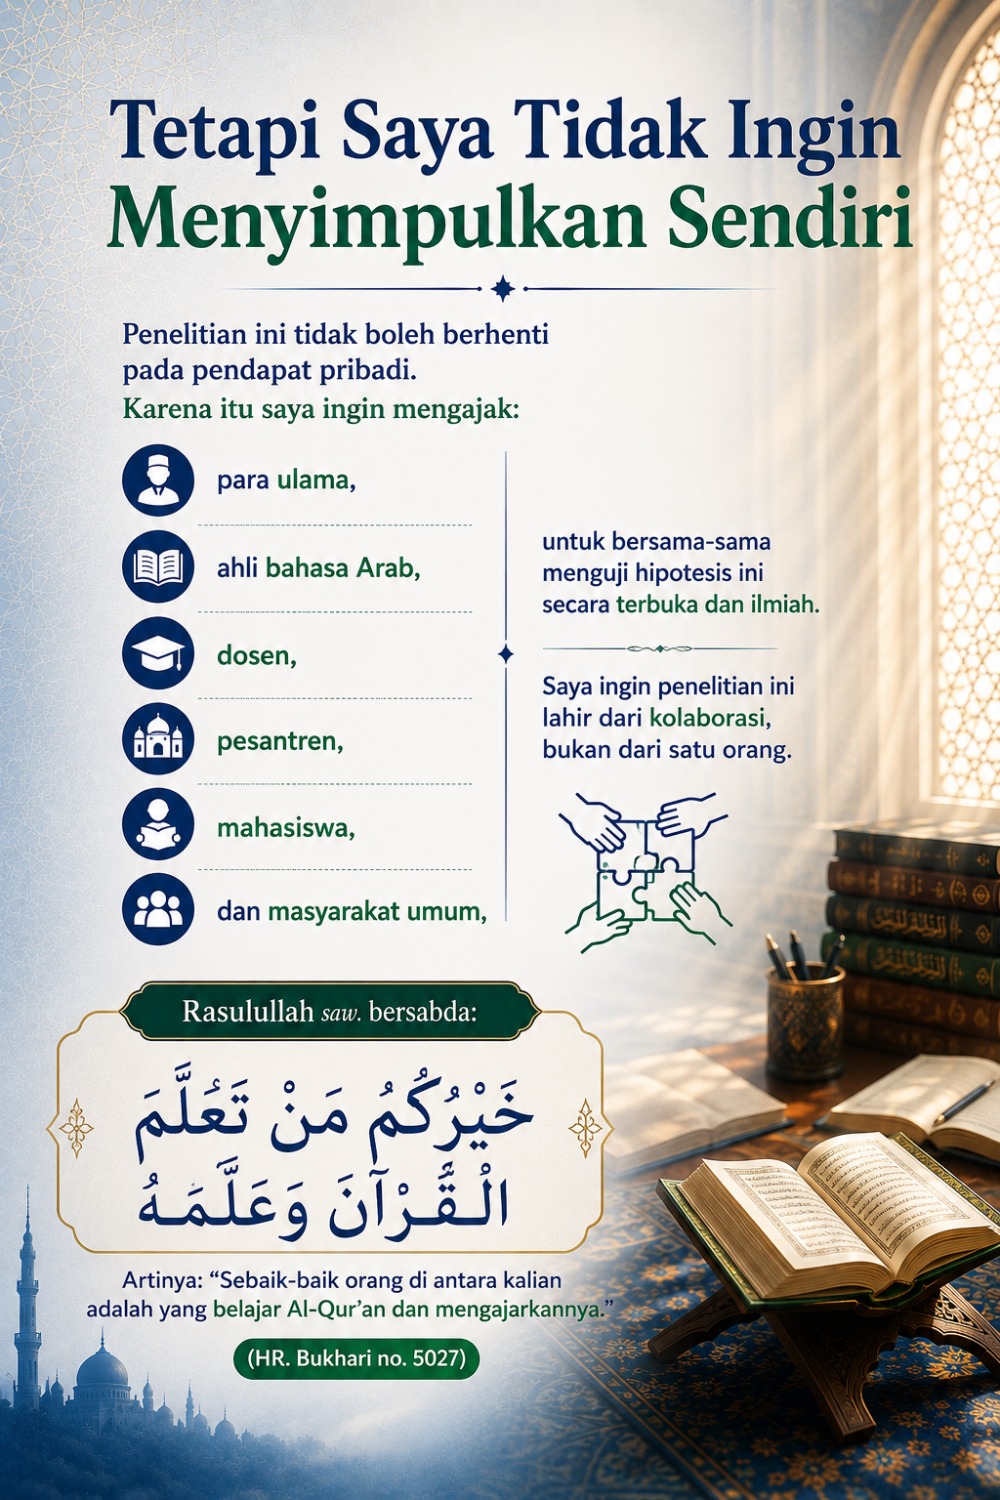 Tetapi Saya Tidak Ingin
Menyimpulkan Sendiri
Penelitian ini tidak boleh berhenti
pada pendapat pribadi.
Karena itu saya ingin mengajak:
para ulama,
ahli bahasa Arab,
dosen,
pesantren,
mahasiswa,
dan masyarakat umum,
untuk bersama-sama
menguji hipotesis ini
secara terbuka dan ilmiah.
Saya ingin penelitian ini
lahir dari kolaborasi,
bukan dari satu orang.
Rasulullah saw. bersabda:
خَيْرُكُمُ مَنْ تَعُلَّمَ
الْقُرْآنَ وَعَلَّمَهُ
Artinya: “Sebaik-baik orang di antara kalian
adalah yang belajar Al-Qur’an dan mengajarkannya.”
(HR. Bukhari no. 5027)